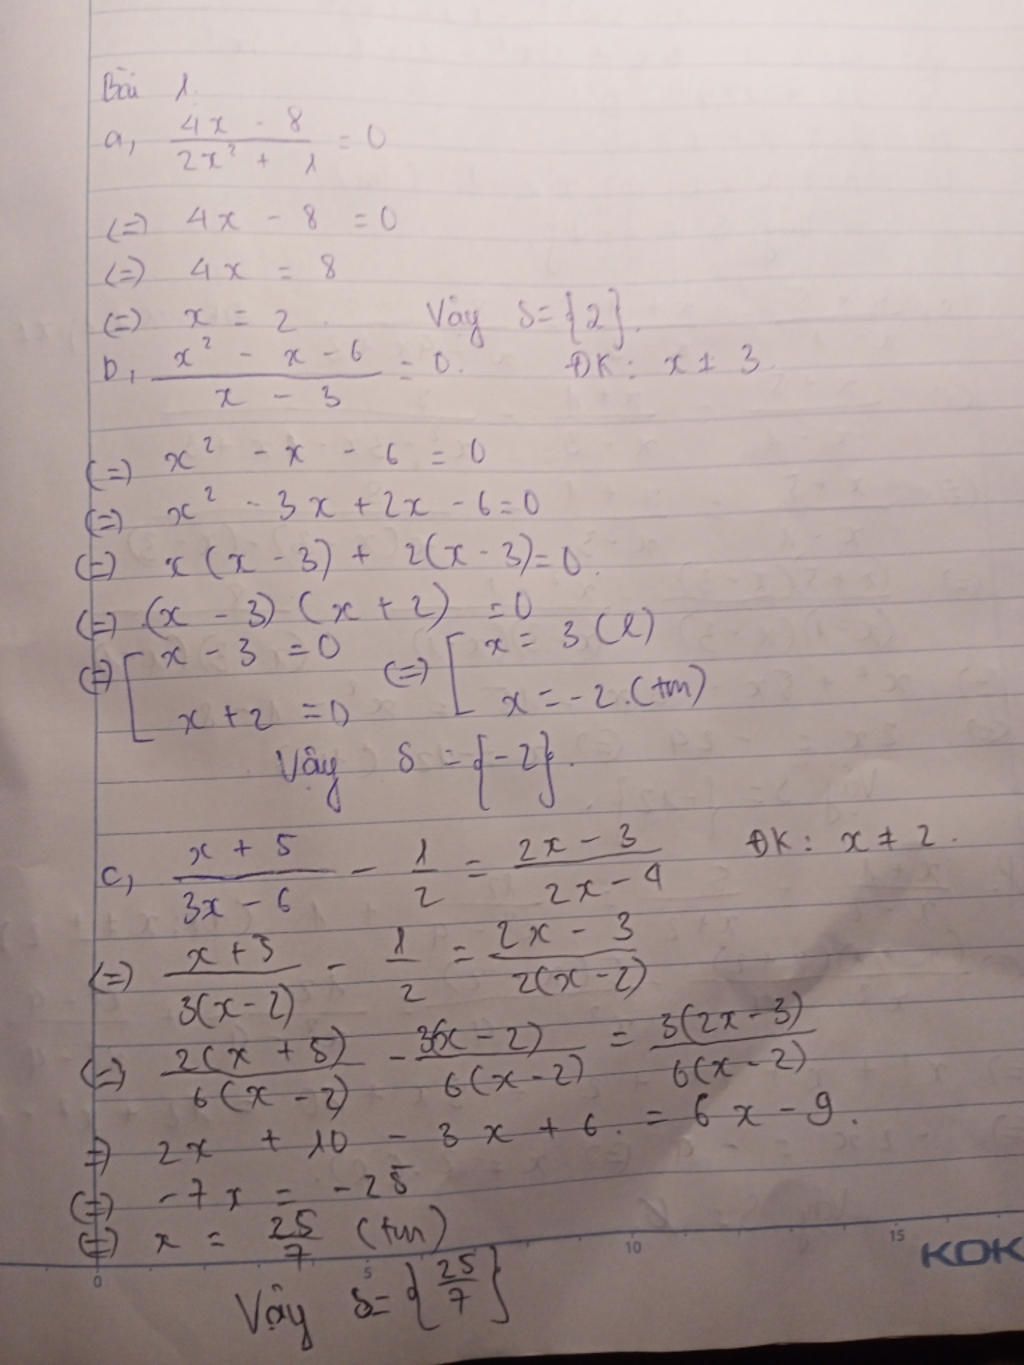 Bài 1.
a, (4x - 8)/(2x² + 1) = 0
(=) 4x - 8 = 0
(=) 4x = 8
(=) x = 2. Vậy S={2}.
b, (x² - x - 6)/(x - 3) = 0. ĐK: x ≠ 3.
(=) x² - x - 6 = 0
(=) x² - 3x + 2x - 6 = 0
(=) x(x - 3) + 2(x - 3) = 0.
(=) (x - 3)(x + 2) = 0
(=) [x - 3 = 0 (=) [x = 3 (l)
x + 2 = 0 x = -2. (tm)
Vậy S = {-2}.
c, (x + 5)/(3x - 6) - 1/2 = (2x - 3)/(2x - 4) ĐK: x ≠ 2.
(=) (x + 5)/(3(x - 2)) - 1/2 = (2x - 3)/(2(x - 2))
(=) (2(x + 5))/(6(x - 2)) - (3(x - 2))/(6(x - 2)) = (3(2x - 3))/(6(x - 2))
=) 2x + 10 - 3x + 6. = 6x - 9.
(=) -7x = -25
(=) x = 25/7 (tm)
0 5 10 15 KOK
Vậy S = {25/7}